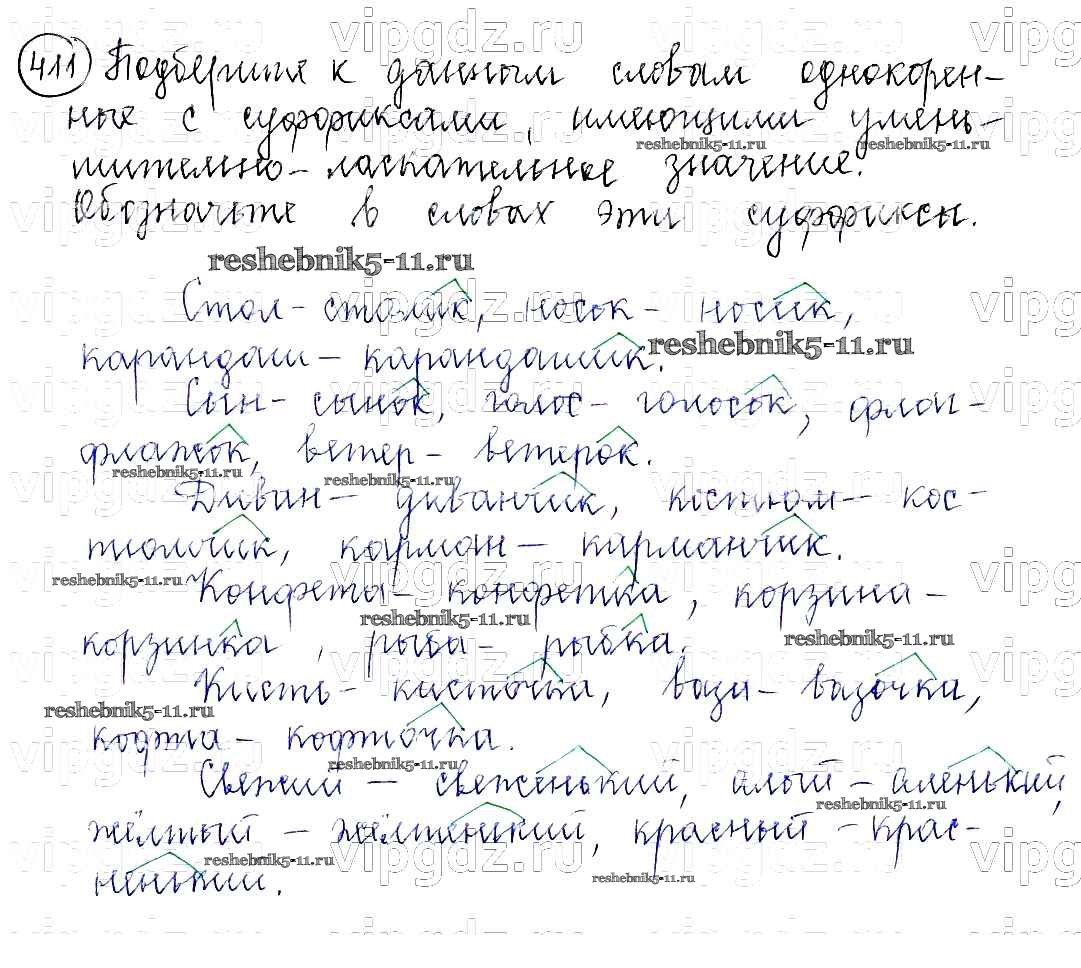 411 Подберите к данным словам однокорен-
ные с суффиксами, имеющими умень-
шительно-ласкательное значение.
Обозначьте в словах эти суффиксы.
reshebnik5-11.ru
Стол - столик, носок - носик,
карандаш - карандашик.
Сын - сынок, голос - голосок, флаг -
флажок, ветер - ветерок.
Диван - диванчик, костюм - кос-
тюмчик, карман - карманчик.
Конфета - конфетка, корзина -
корзинка, рыба - рыбка.
Кисть - кисточка, ваза - вазочка,
кофта - кофточка.
Свежий - свеженький, алый - аленький,
жёлтый - жёлтенький, красный - крас-
ненький.